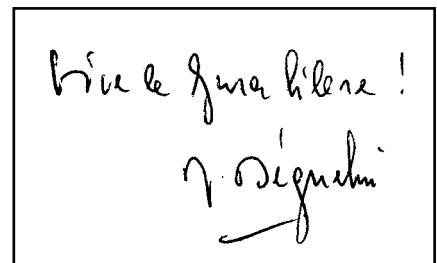 Vive le Jura libre !
J. Béguelin